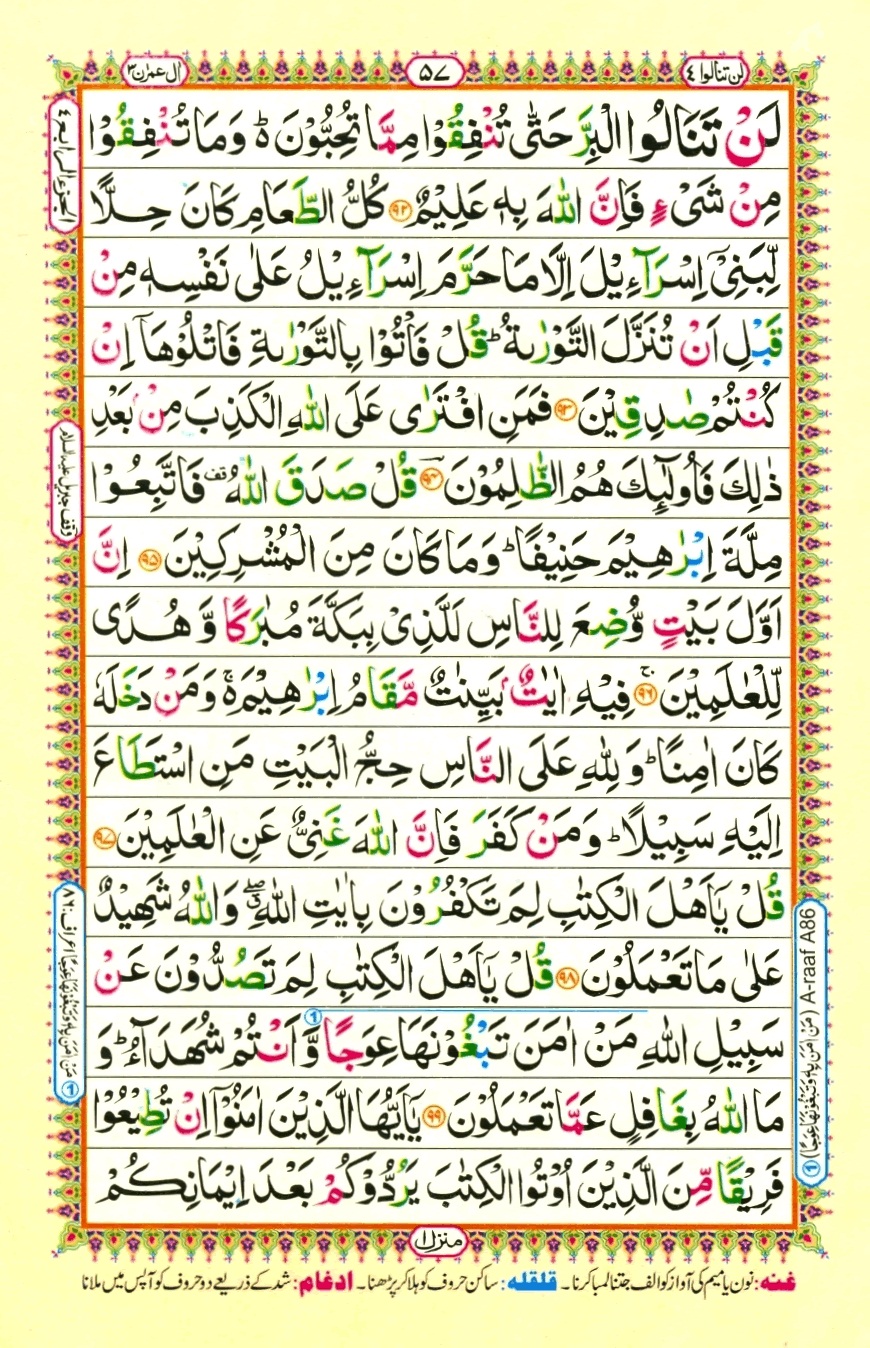 لن تنالوا ٤
٥٧
اٰل عمرٰن ٣
لَنْ تَنَالُوا الْبِرَّ حَتّٰى تُنْفِقُوْا مِمَّا تُحِبُّوْنَ ۬ؕ وَمَا تُنْفِقُوْا
مِنْ شَیْءٍ فَاِنَّ اللّٰهَ بِهٖ عَلِیْمٌ ﴿۹۲﴾ كُلُّ الطَّعَامِ كَانَ حِلًّا
لِّبَنِیْۤ اِسْرَآءِیْلَ اِلَّا مَا حَرَّمَ اِسْرَآءِیْلُ عَلٰى نَفْسِهٖ مِنْ
قَبْلِ اَنْ تُنَزَّلَ التَّوْرٰىةُ ؕ قُلْ فَاْتُوْا بِالتَّوْرٰىةِ فَاتْلُوْهَاۤ اِنْ
كُنْتُمْ صٰدِقِیْنَ ﴿۹۳﴾ فَمَنِ افْتَرٰى عَلَى اللّٰهِ الْكَذِبَ مِنْۢ بَعْدِ
ذٰلِكَ فَاُولٰٓىِٕكَ هُمُ الظّٰلِمُوْنَ ﴿۹۴﴾ قُلْ صَدَقَ اللّٰهُ ۫ قف فَاتَّبِعُوْا
مِلَّةَ اِبْرٰهِیْمَ حَنِیْفًا ؕ وَمَا كَانَ مِنَ الْمُشْرِكِیْنَ ﴿۹۵﴾ اِنَّ
اَوَّلَ بَیْتٍ وُّضِعَ لِلنَّاسِ لَلَّذِیْ بِبَكَّةَ مُبٰرَكًا وَّ هُدًى
لِّلْعٰلَمِیْنَ ﴿۹۶﴾ۚ فِیْهِ اٰیٰتٌۢ بَیِّنٰتٌ مَّقَامُ اِبْرٰهِیْمَ ۬ۚ وَمَنْ دَخَلَهٗ
كَانَ اٰمِنًا ؕ وَلِلّٰهِ عَلَى النَّاسِ حِجُّ الْبَیْتِ مَنِ اسْتَطَاعَ
اِلَیْهِ سَبِیْلًا ؕ وَمَنْ كَفَرَ فَاِنَّ اللّٰهَ غَنِیٌّ عَنِ الْعٰلَمِیْنَ ﴿۹۷﴾
قُلْ یٰۤاَهْلَ الْكِتٰبِ لِمَ تَكْفُرُوْنَ بِاٰیٰتِ اللّٰهِ ۖۗ وَاللّٰهُ شَهِیْدٌ
عَلٰى مَا تَعْمَلُوْنَ ﴿۹۸﴾ قُلْ یٰۤاَهْلَ الْكِتٰبِ لِمَ تَصُدُّوْنَ عَنْ
سَبِیْلِ اللّٰهِ مَنْ اٰمَنَ تَبْغُوْنَهَا عِوَجًا ① وَّاَنْتُمْ شُهَدَآءُ ؕ وَ
مَا اللّٰهُ بِغَافِلٍ عَمَّا تَعْمَلُوْنَ ﴿۹۹﴾ یٰۤاَیُّهَا الَّذِیْنَ اٰمَنُوْۤا اِنْ تُطِیْعُوْا
فَرِیْقًا مِّنَ الَّذِیْنَ اُوْتُوا الْكِتٰبَ یَرُدُّوْكُمْ بَعْدَ اِیْمَانِكُمْ
الجزء الرابع ٤
وقف جبریل علیہ السلام
① مَنْ اٰمَنَ بِهٖ وَتَبْغُوْنَهَا عِوَجًا اعراف: ۸۶
① (مَنْ اٰمَنَ بِهٖ وَتَبْغُوْنَهَا عِوَجًا) A-raaf A86
منزل ١
غنه: نون یا میم کی آواز کو الف جتنا لمبا کرنا۔ قلقله: ساکن حروف کو ہلا کر پڑھنا۔ ادغام: شد کے ذریعے دو حروف کو آپس میں ملانا